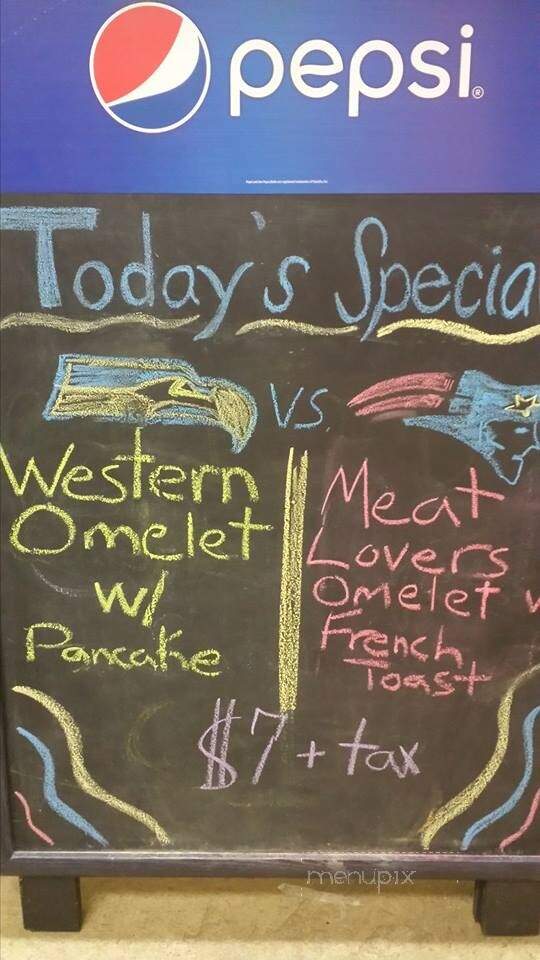 pepsi®
Today's Specia
VS.
Western
Omelet
w/
Pancake
Meat
Lovers
Omelet w
French
Toast
$7 + tax
menupix